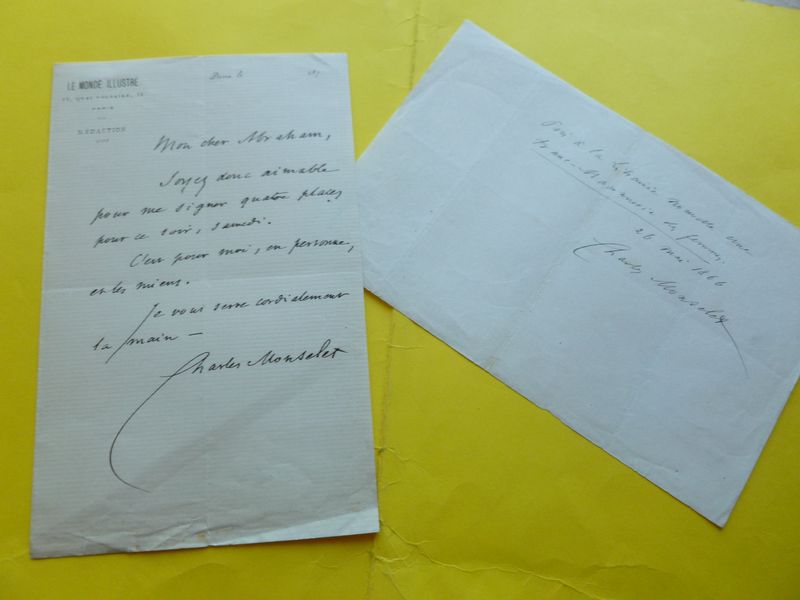 LE MONDE ILLUSTRÉ
13, QUAI VOLTAIRE, 13
PARIS
RÉDACTION
Paris le 187
Mon cher Abraham,
Soyez donc aimable
pour me signer quatre places
pour ce soir, samedi.
C'est pour moi, en personne,
et les miens.
Je vous serre cordialement
la main —
Charles Monselet
Pris à la Librairie nouvelle une
Franc-Maçonnerie des femmes,
26 mai 1866
Charles Monselet